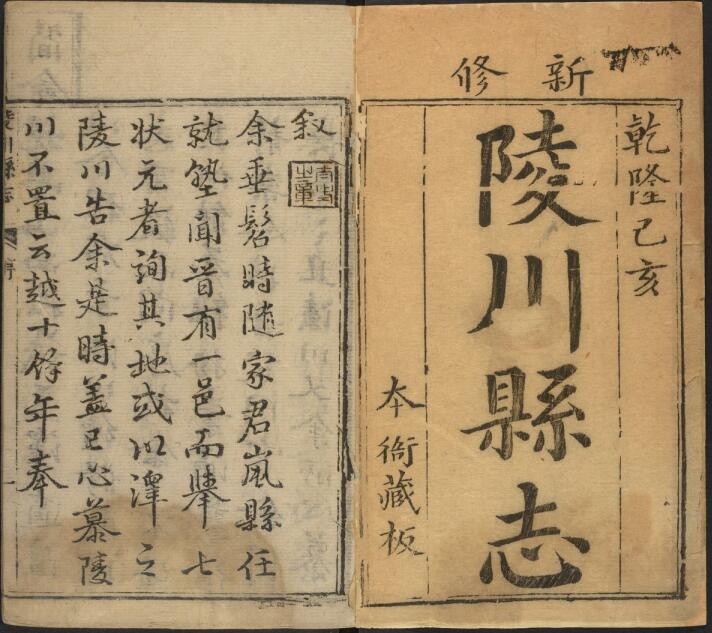 新修
乾隆己亥
陵川縣志
本衙藏板
叙
余垂髫時随家君嵐縣任
就塾聞晋有一邑而舉七
状元者詢其地或以澤之
陵川告余是時蓋已心慕陵
川不置云越十餘年奉
陵川縣志
序
一